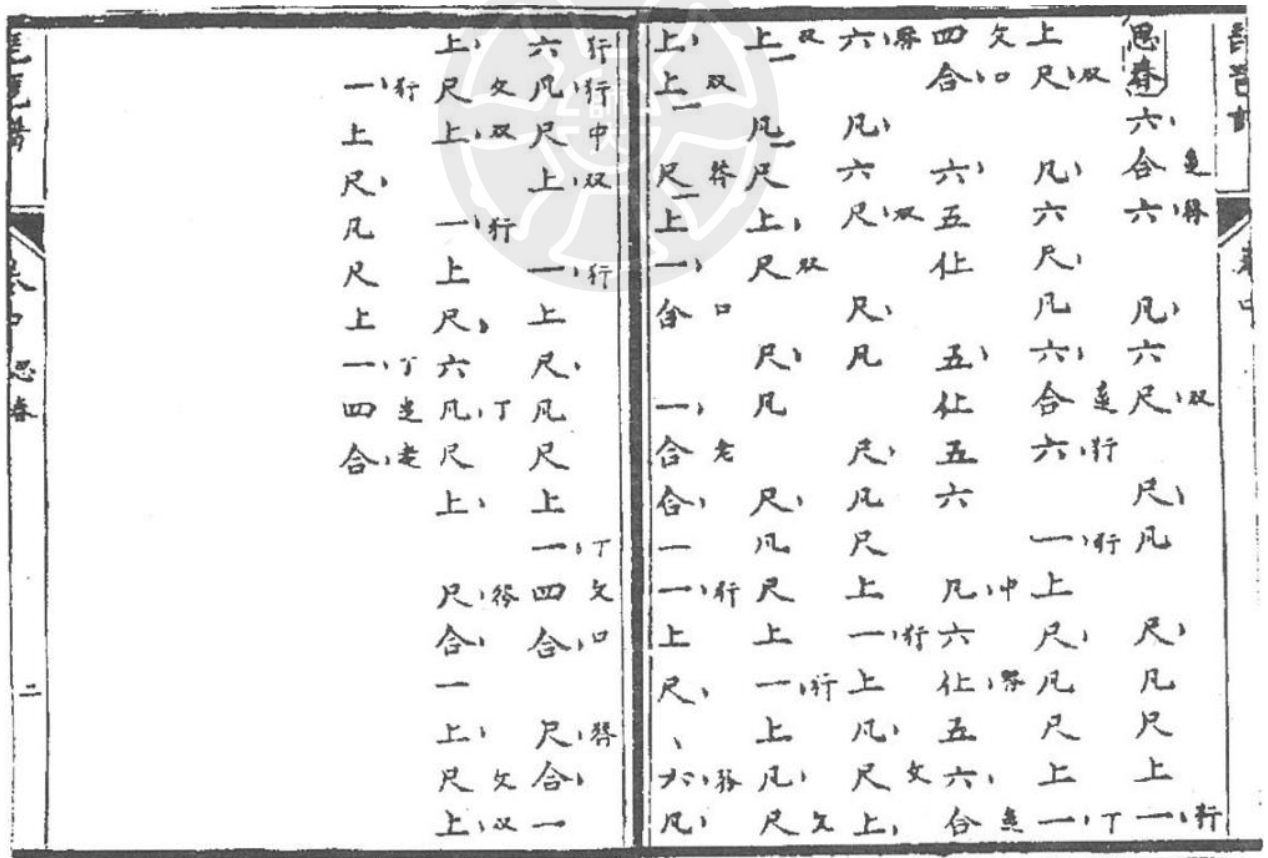 思春
六、合六、凡、六尺、双尺、凡尺、凡尺上一、行
上尺、双凡、六尺、凡六、合六、行一、行上尺、凡尺上一、丁
四文合、口六、五仩五、仩五六凡、中六仩、五六、合
六、凡、六尺、双尺、凡尺、凡尺上一、行上凡、尺文上、
上双凡尺上、尺双尺、凡尺、凡尺上一、行上凡、尺文
上、上双尺上一、合口一、合老合、一一、行上尺、、六、凡、
六行凡、行尺中上、双一、行上尺、凡尺上一、丁四文合、口尺、合、一
上、尺文上、双一、行上尺、六凡、丁尺上、尺、合、一上、尺文上、双
一、行上尺、凡尺上一、丁四合、老
琵琶譜
卷中 思春
二